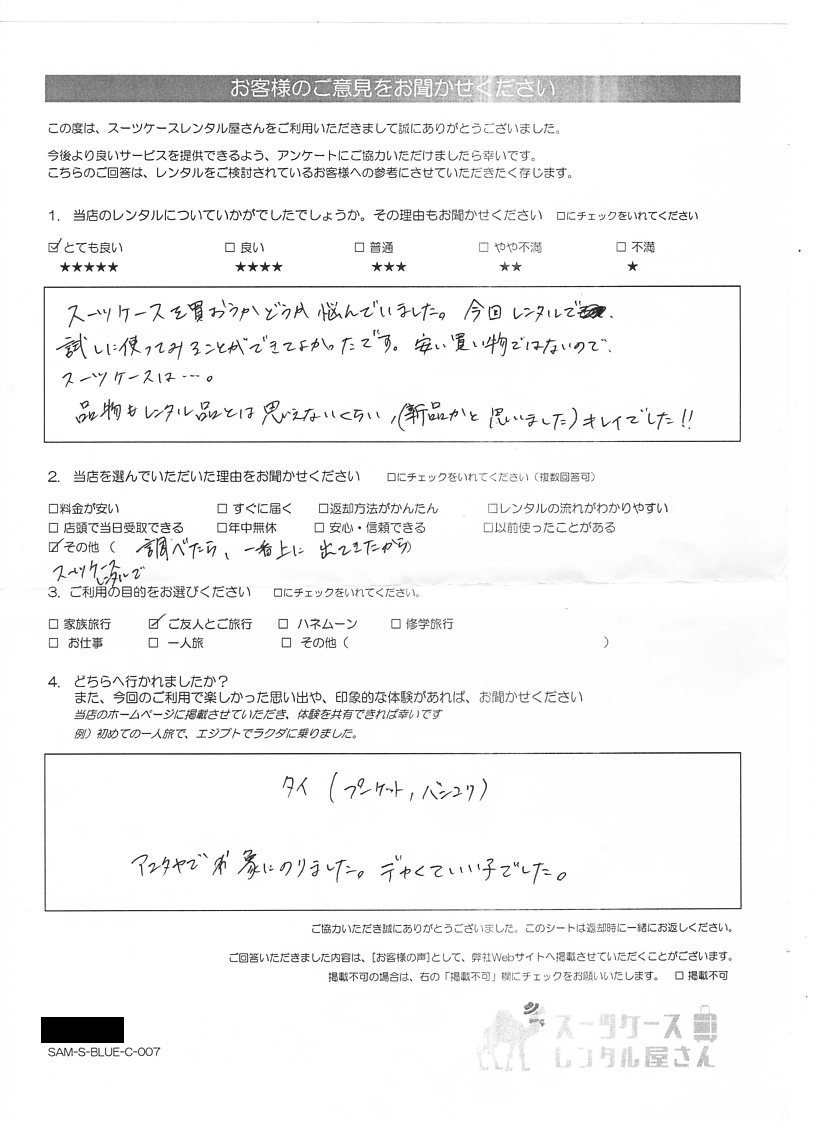 お客様のご意見をお聞かせください
この度は、スーツケースレンタル屋さんをご利用いただきまして誠にありがとうございました。
今後より良いサービスを提供できるよう、アンケートにご協力いただけましたら幸いです。
こちらのご回答は、レンタルをご検討されているお客様への参考にさせていただきたく存じます。
1. 当店のレンタルについていかがでしたでしょうか。その理由もお聞かせください □にチェックをいれてください
☑とても良い □ 良い □ 普通 □ やや不満 □ 不満
★★★★★ ★★★★ ★★★ ★★ ★
スーツケースを買おうかどうか悩んでいました。今回レンタルで、
試しに使ってみることができてよかったです。安い買い物ではないので、
スーツケースは…。
品物もレンタル品とは思えないくらい,(新品かと思いました)キレイでした!!
2. 当店を選んでいただいた理由をお聞かせください □にチェックをいれてください(複数回答可)
□料金が安い □ すぐに届く □返却方法がかんたん □レンタルの流れがわかりやすい
□ 店頭で当日受取できる □年中無休 □ 安心・信頼できる □以前使ったことがある
☑その他( 調べたら,一番上に出てきたから)
スーツケース
レンタルで
3. ご利用の目的をお選びください □にチェックをいれてください。
□ 家族旅行 ☑ ご友人とご旅行 □ ハネムーン □ 修学旅行
□ お仕事 □ 一人旅 □ その他( )
4. どちらへ行かれましたか?
また、今回のご利用で楽しかった思い出や、印象的な体験があれば、お聞かせください
当店のホームページに掲載させていただき、体験を共有できれば幸いです
例)初めての一人旅で、エジプトでラクダに乗りました。
タイ (プーケット,バンコク)
アユタヤで 象にのりました。デカくていい子でした。
ご協力いただき誠にありがとうございました。このシートは返却時に一緒にお返しください。
ご回答いただきました内容は、[お客様の声]として、弊社Webサイトへ掲載させていただくことがございます。
掲載不可の場合は、右の「掲載不可」欄にチェックをお願いいたします。 □ 掲載不可
SAM-S-BLUE-C-007
スーツケース
レンタル屋さん